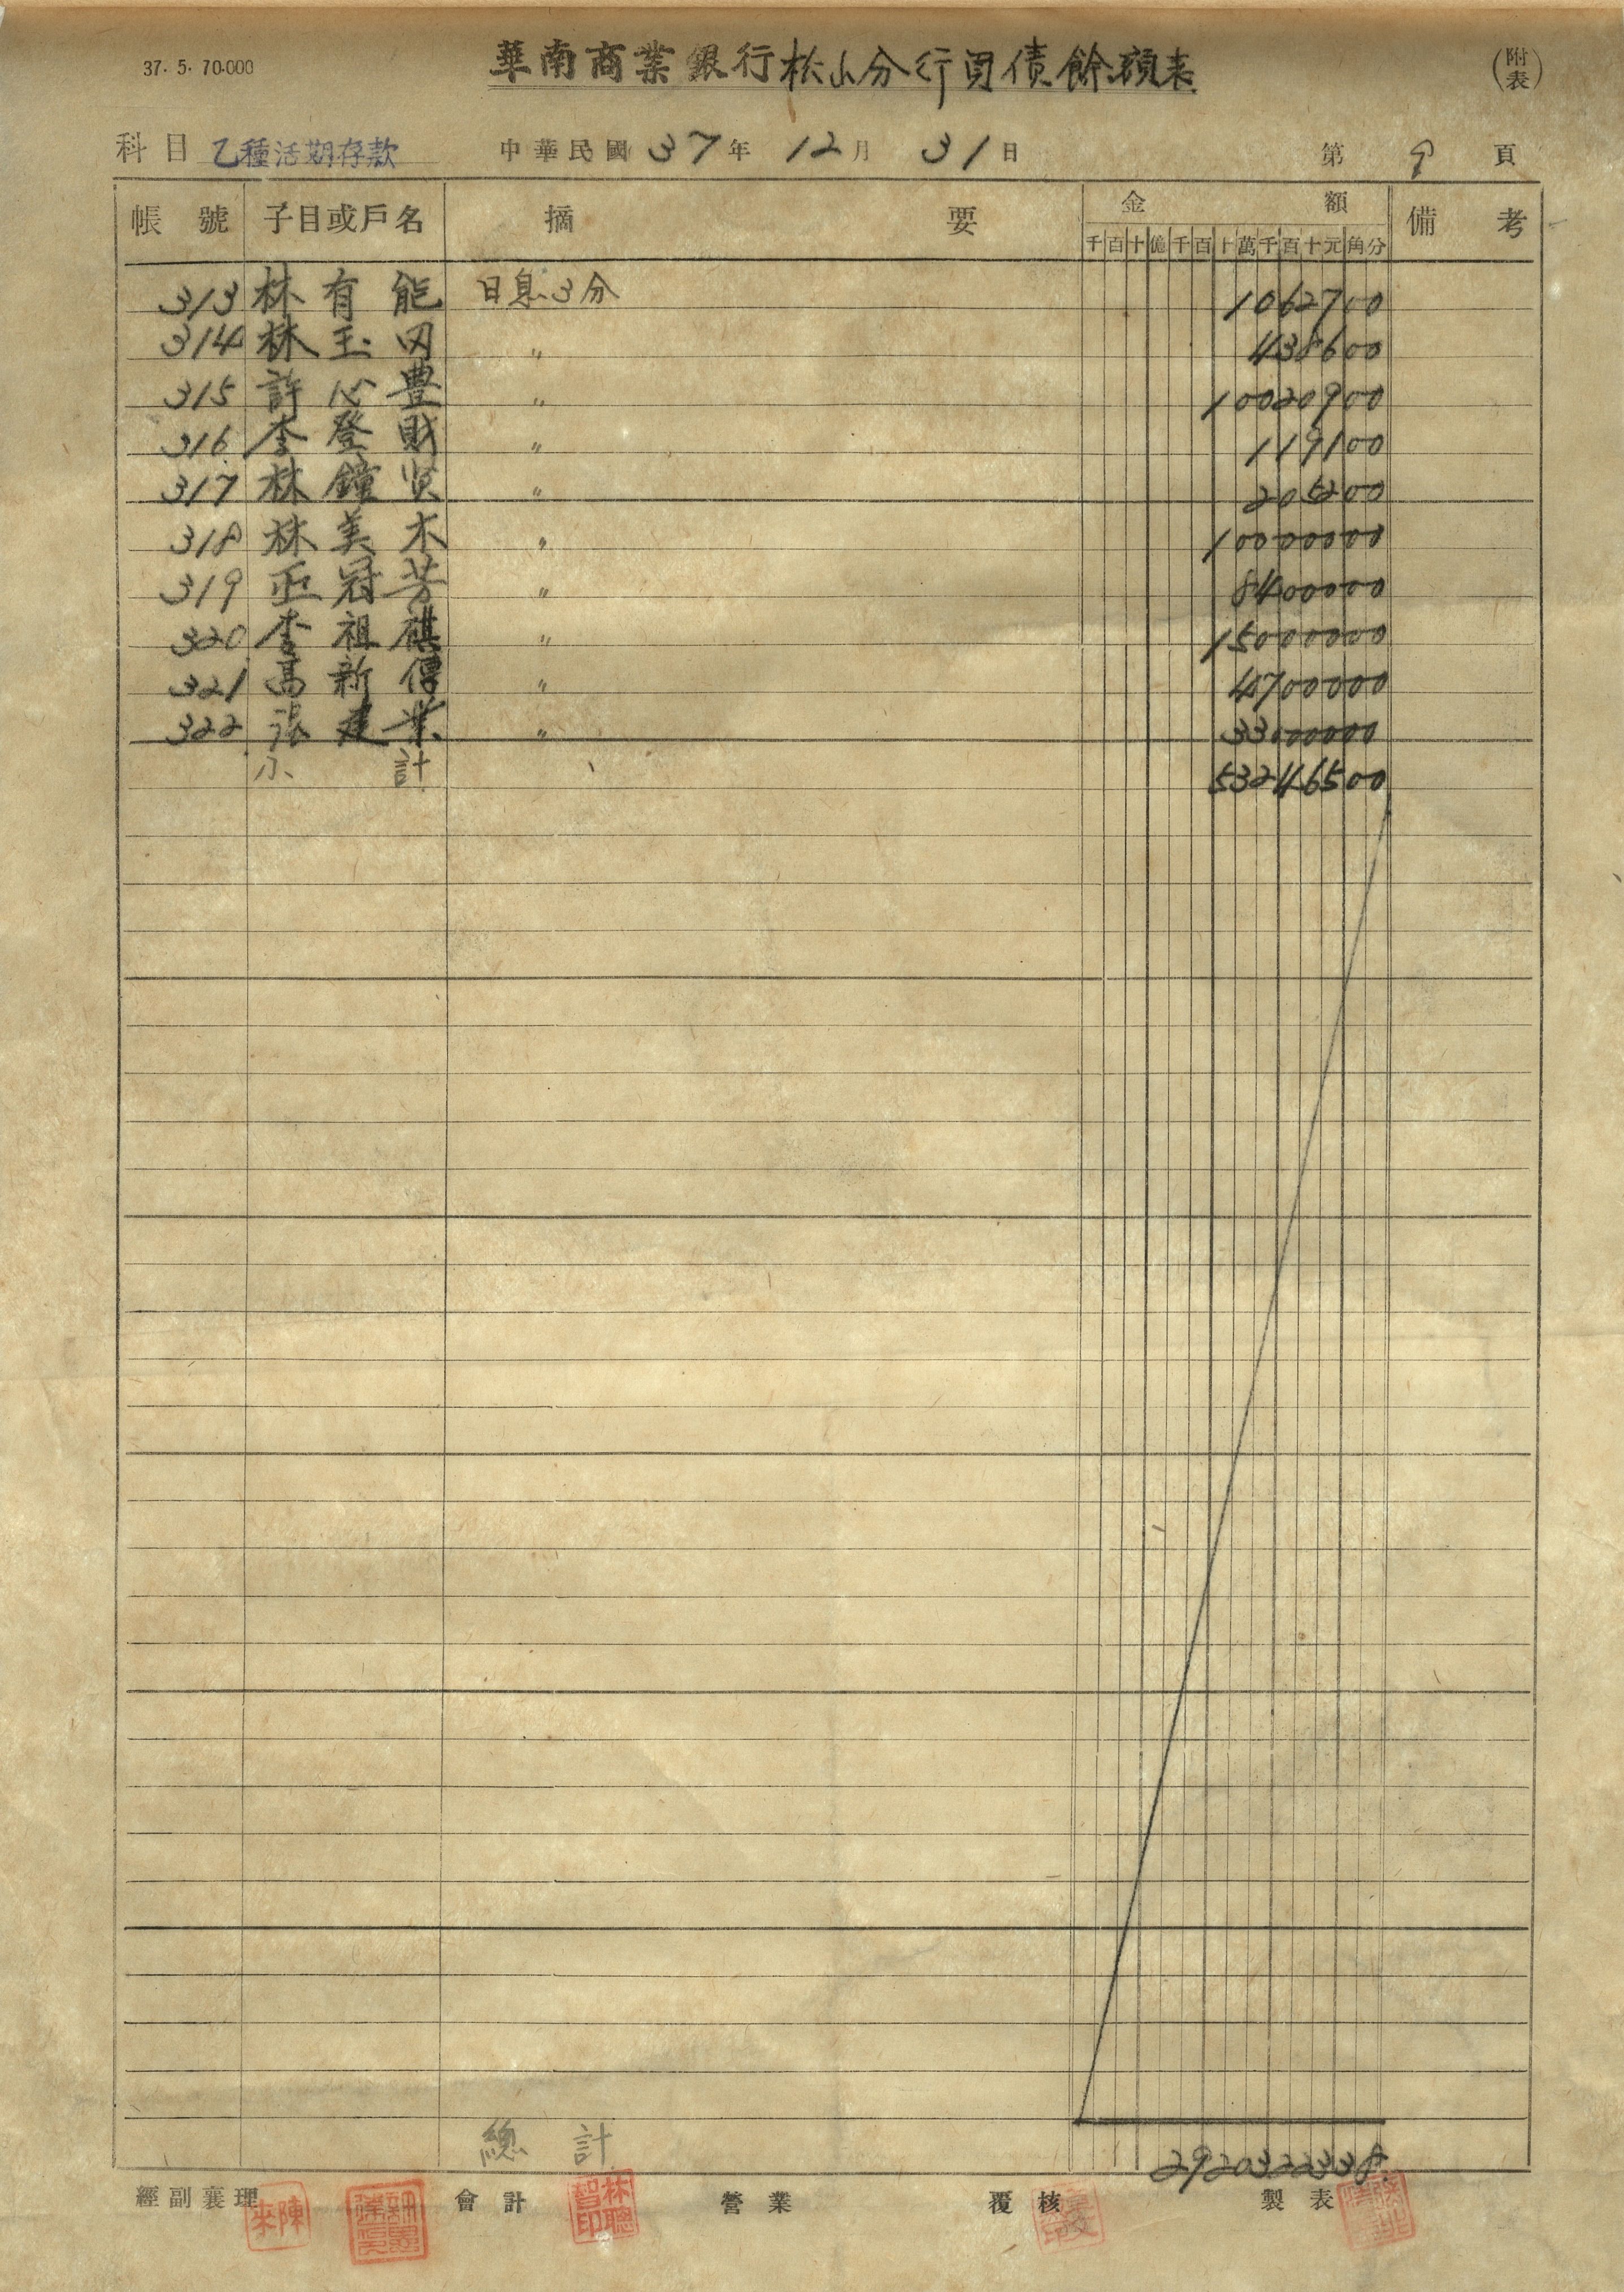 37. 5. 70.000
華南商業銀行松山分行負債餘額表
(附表)
科目 乙種活期存款 中華民國 37 年 12 月 31 日 第 9 頁
帳號 子目或戶名 摘要 金額 備考
千百十億千百十萬千百十元角分
313 林有能 日息3分 1062700
314 林玉 〃 438600
315 許心豊 〃 10020900
316 李登財 〃 119100
317 林鐘賢 〃 205200
318 林美木 〃 10000000
319 冠芳 〃 8400000
320 李祖祺 〃 15000000
321 高新傳 〃 4700000
322 張建業 〃 3300000
小計 53246500
總計 2920322338
經副襄理 會計 營業 覆核 製表
陳來
林聰智印